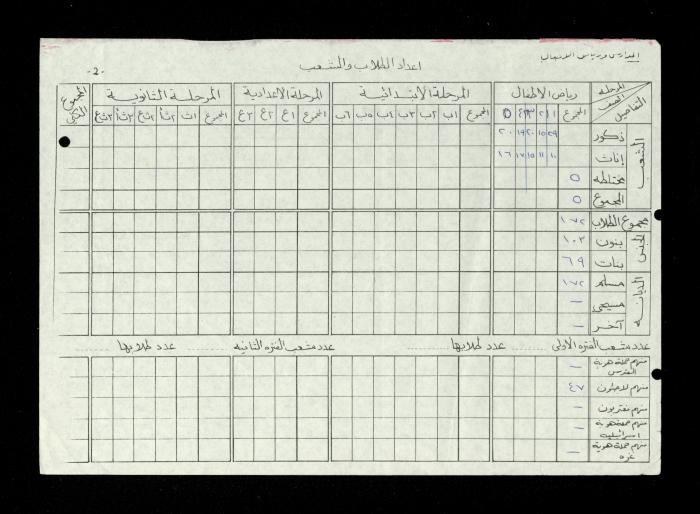 المدارس ورياض الأطفال
اعداد الطلاب والشعب
-2-
المرحلة
الصف
التفاصيل
رياض الاطفال
المرحلة الابتدائية
المرحلة الاعدادية
المرحلة الثانوية
المجموع الكلي
المجموع ١ ٢ ٣ ٤ ٥
المجموع ١ب ٢ب ٣ب ٤ب ٥ب ٦ب
المجموع ١ع ٢ع ٣ع
المجموع ١ث ٢ثأ ٢ثع ٣ثأ ٣ثع
الشعب
ذكور ٢٩ ١٥ ٢٠ ١٩ ٢٠
إناث ١٠ ١١ ١٥ ١٧ ١٦
مختلطه ٥
المجموع ٥
مجموع الطلاب ١٧٢
الجنس
بنون ١٠٣
بنات ٦٩
الديانه
مسلم ١٧٢
مسيحي —
آخر —
عدد شعب الفتره الأولى ........ عدد طلابها ........ عدد شعب الفتره الثانيه ........ عدد طلابها ........
منهم حملة هوية القدس —
منهم لاجئون ٤٧
منهم مغتربون —
منهم حملة هوية اسرائيليه —
منهم حملة هوية غزه —